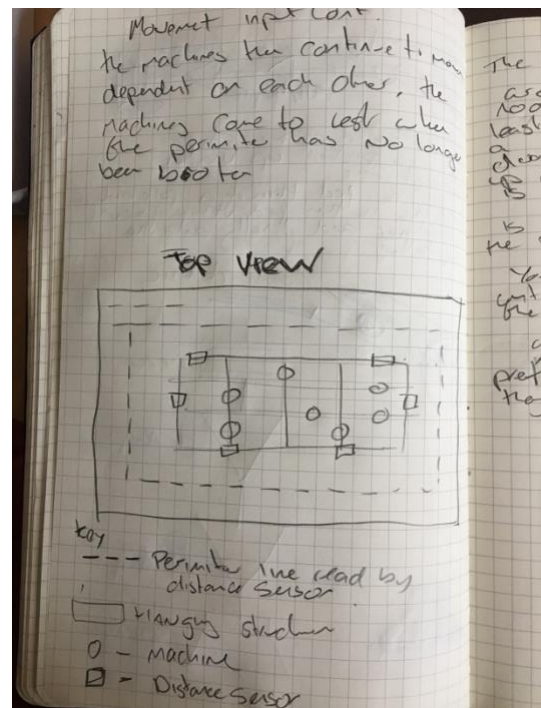 Movemet input cont.
the machines then continue to move
dependent on each other, the
machines come to rest when
the perimiter has no longer
been broken
Top View
Key
--- - Perimiter line read by
distance sensor
Hanging structure
O - Machine
- Distance sensor
The
are
least
a
is
the
the